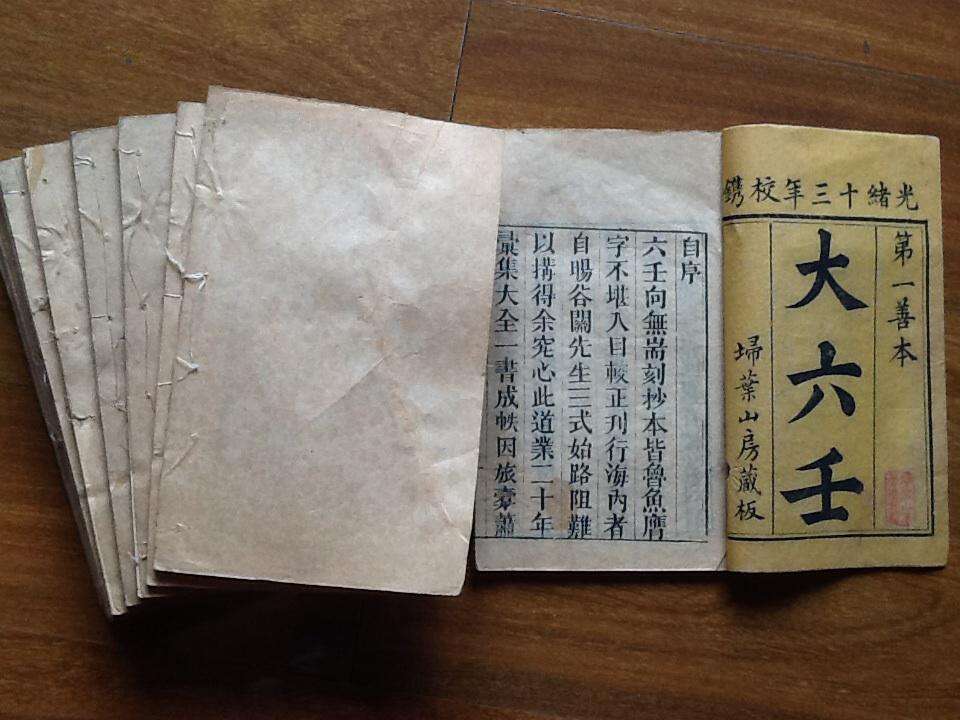 光緒十三年校鐫
第一善本
大六壬
埽葉山房藏板
自序
六壬向無耑刻抄本皆魯魚
字不堪入目較正刊行海內者
自暘谷關先生三式始路阻難
以搆得余究心此道業二十年
集大全一書成帙因旅橐蕭